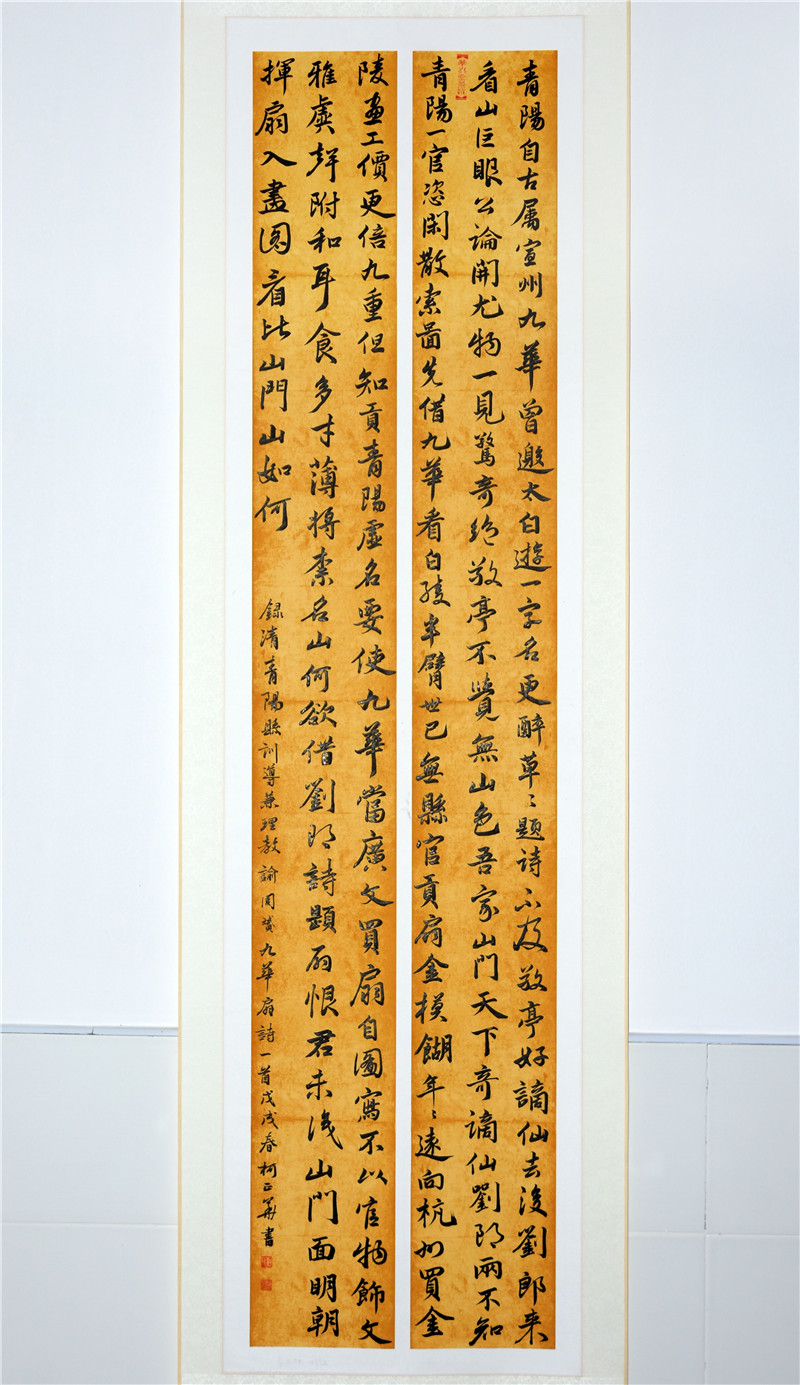 青陽自古属宣州九華曾邀太白遊一字名更醉草〻題诗不及敬亭好謫仙去後劉郎来
看山巨眼公論開尤物一見驚奇絕敬亭不覺無山色吾家山門天下奇謫仙劉郎兩不知
青陽一官恣閑散索畫先借九華看白綾半臂世已無縣官貢扇金模餬年〻遠向杭州買金
陵畫工價更倍九重但知貢青陽虛名要使九華當廣文買扇自圖寫不以官物飾文
雅虞
附和耳食多才薄
名山何欲借劉郎詩題扇恨君未識山門面明朝
揮扇入畫图看比山門山如何
録清青陽縣訓導兼理教諭周
九華扇詩一首戊戌春柯正華書